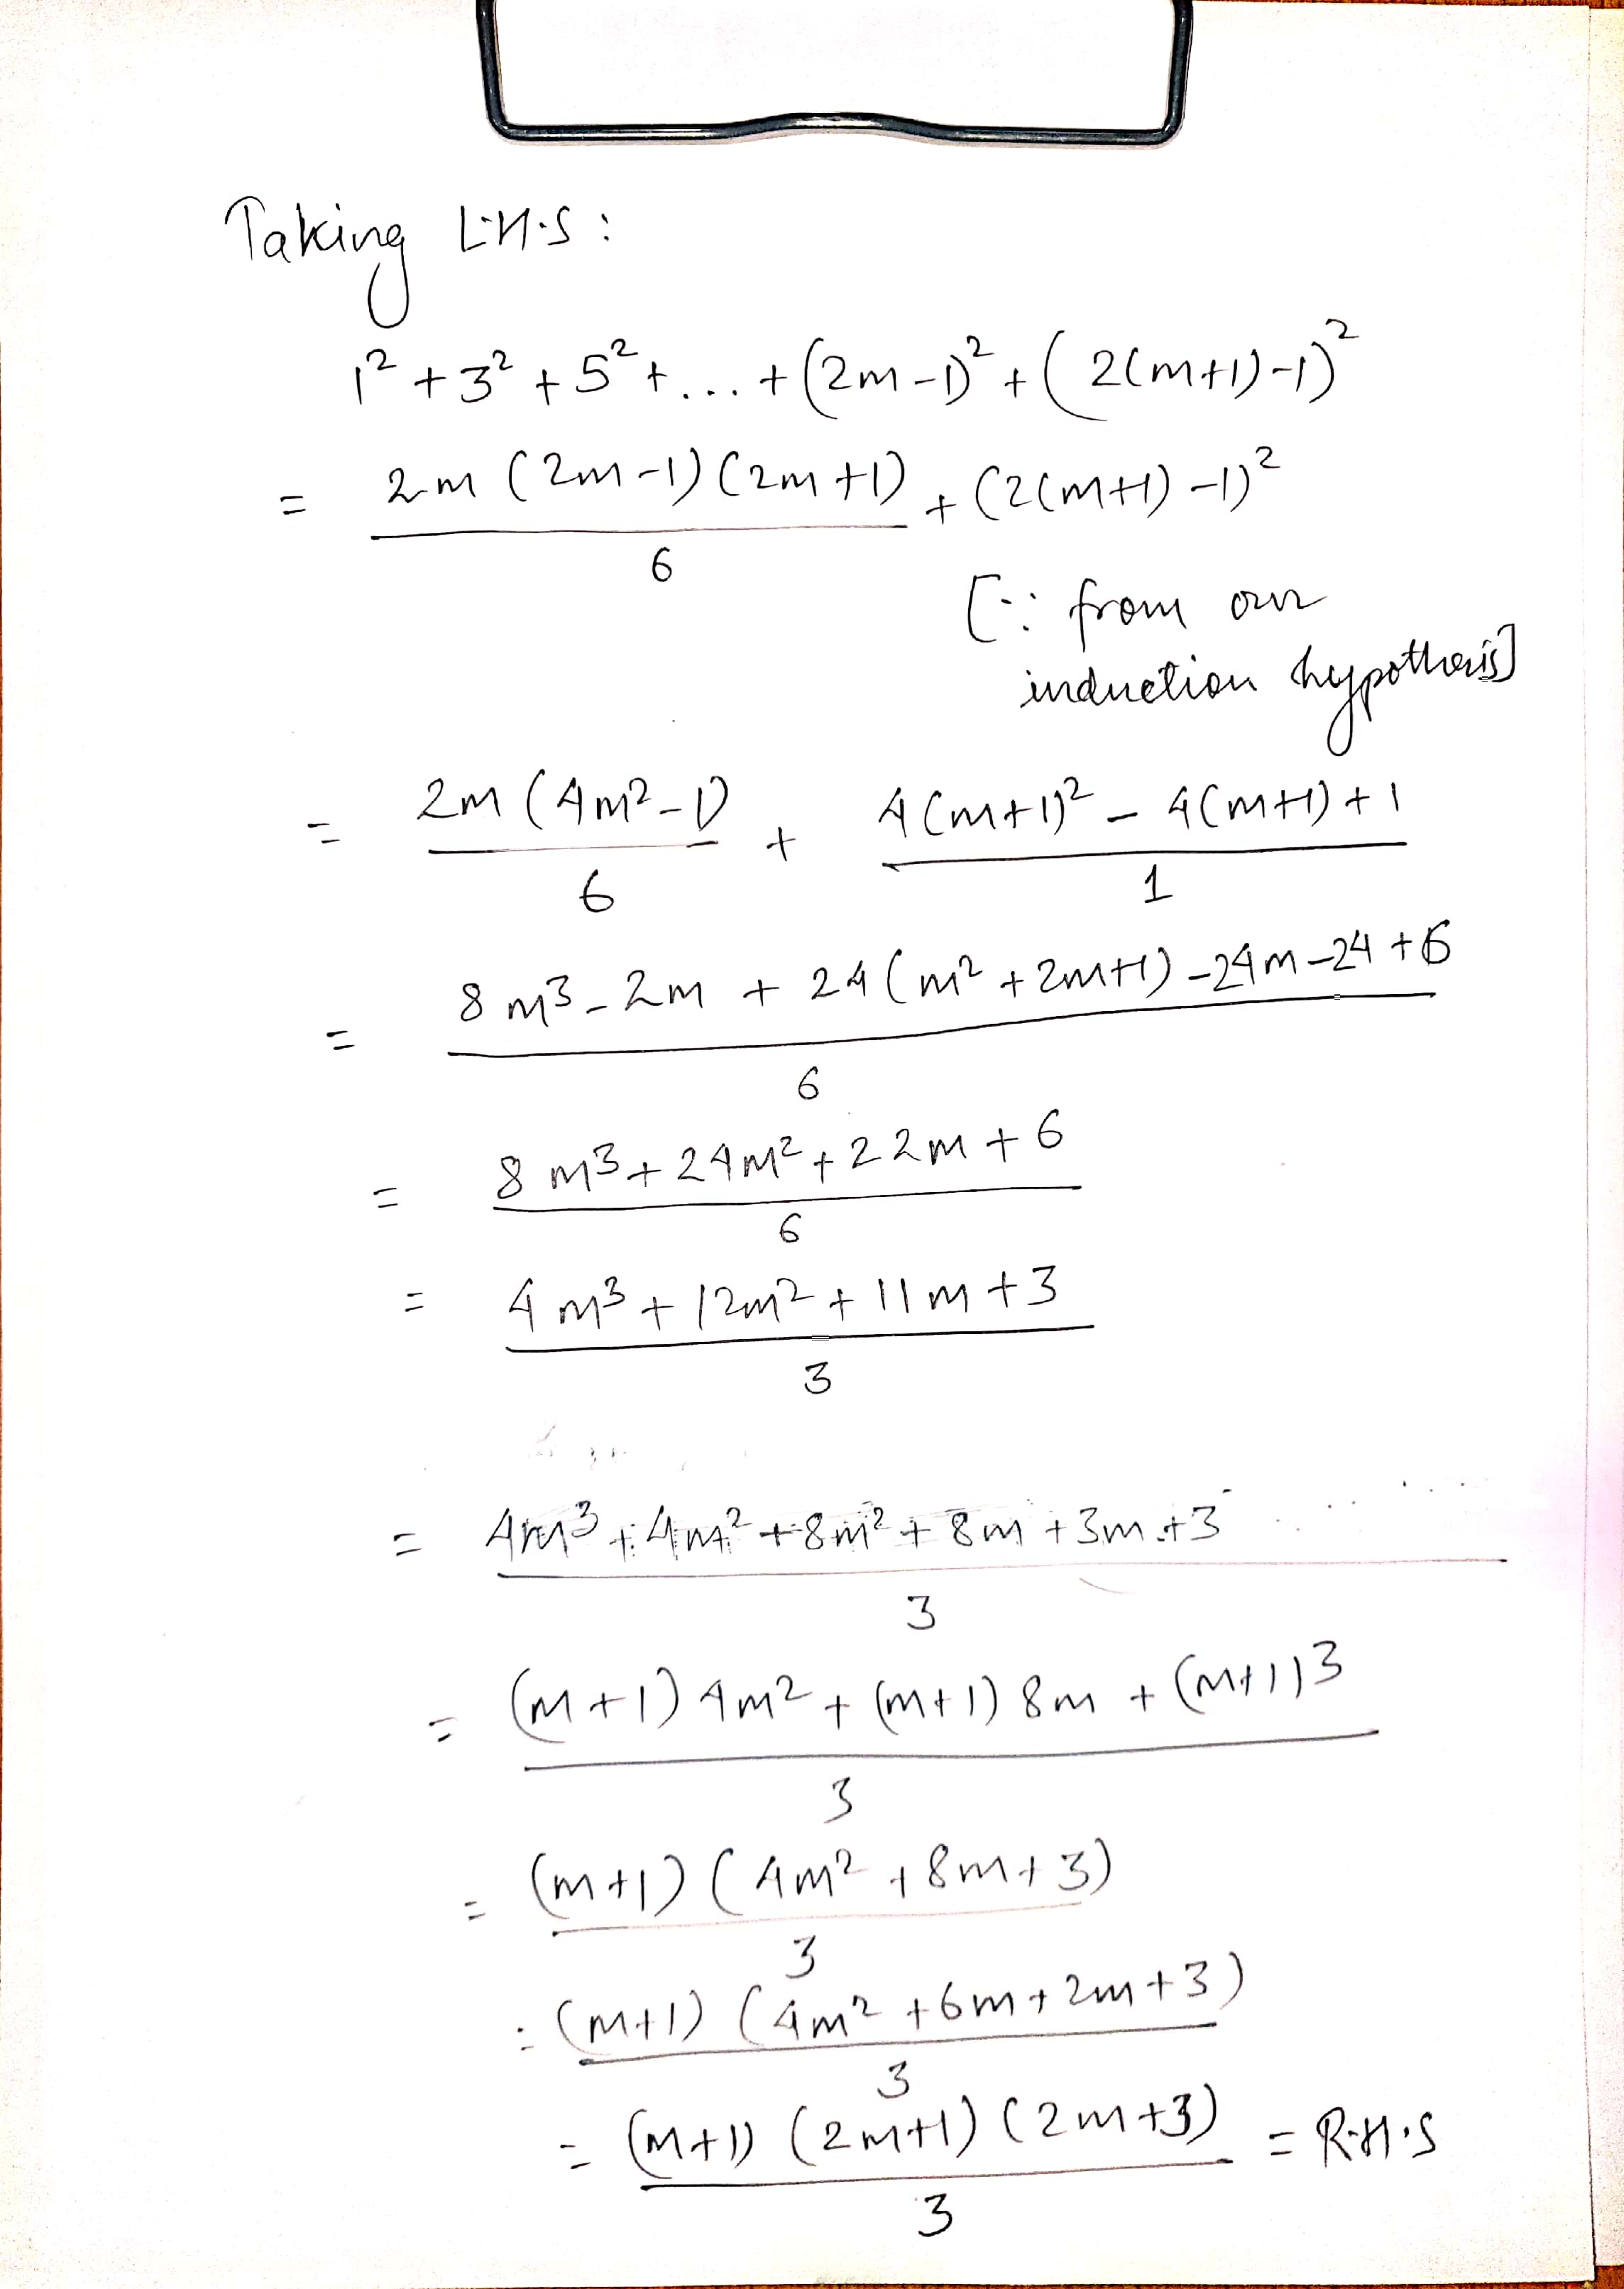 Taking L.H.S :
1² + 3² + 5² + ... + (2m-1)² + (2(m+1)-1)²
= 2m (2m-1) (2m+1) / 6 + (2(m+1)-1)²
[∵ from our
induction hypothesis]
= 2m (4m²-1) / 6 + 4(m+1)² - 4(m+1) + 1 / 1
= 8m³ - 2m + 24(m² + 2m+1) - 24m - 24 + 6 / 6
= 8m³ + 24m² + 22m + 6 / 6
= 4m³ + 12m² + 11m + 3 / 3
= 4m³ + 4m² + 8m² + 8m + 3m + 3 / 3
= (m+1) 4m² + (m+1) 8m + (m+1) 3 / 3
= (m+1) (4m² + 8m + 3) / 3
= (m+1) (4m² + 6m + 2m + 3) / 3
= (m+1) (2m+1) (2m+3) / 3 = R.H.S